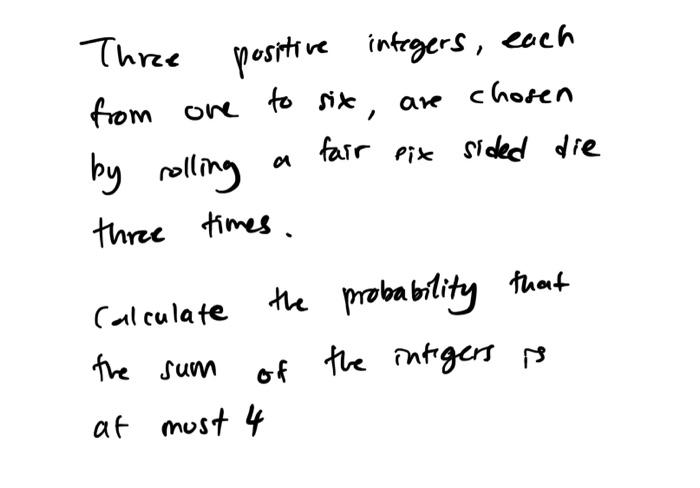 Three positive integers, each
from one to six, are chosen
by rolling a fair six sided die
three times.
Calculate the probability that
the sum of the integers is
at most 4